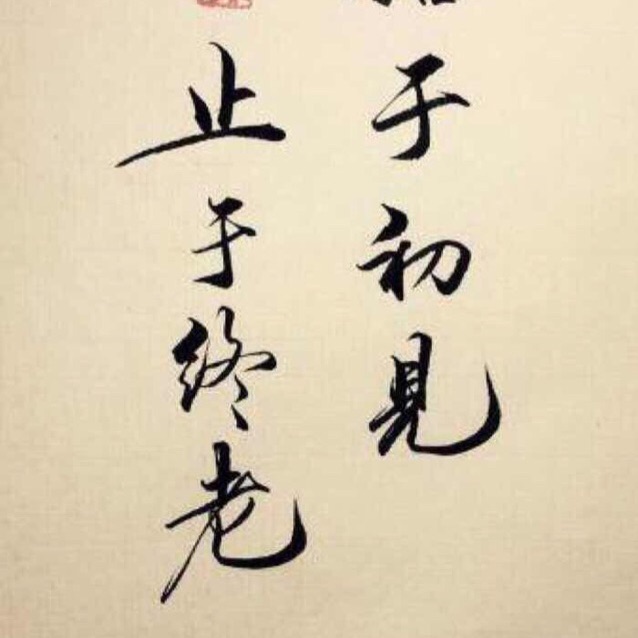 于初見
止于终老